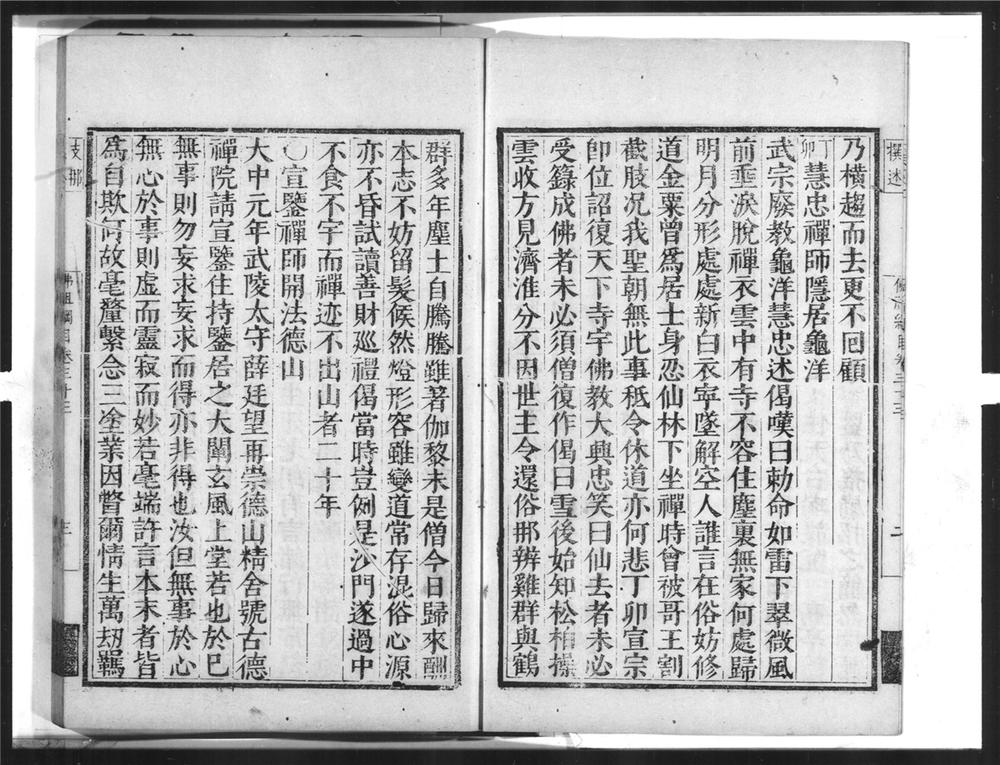 撰述
佛祖綱目卷三十三
二
乃橫趨而去更不回顧
丁卯慧忠禪師隱居龜洋
武宗廢教龜洋慧忠述偈嘆曰勅命如雷下翠微風
前垂淚脫禪衣雲中有寺不容住塵裏無家何處歸
明月分形處處新白衣寧墜解空人誰言在俗妨修
道金粟曾爲居士身忍仙林下坐禪時曾被哥王割
截肢况我聖朝無此事秪令休道亦何悲丁卯宣宗
卽位詔復天下寺宇佛教大興忠笑曰仙去者未必
受籙成佛者未必須僧復作偈曰雪後始知松栢操
雲收方見濟淮分不因世主令還俗那辨雞群與鶴
群多年塵土自騰騰雖著伽黎未是僧今日歸來酬
本志不妨留髮候然燈形容雖變道常存混俗心源
亦不昏試讀善財巡禮偈當時豈例是沙門遂過中
不食不宇而禪迹不出山者二十年
〇宣鑒禪師開法德山
大中元年武陵太守薛廷望再崇德山精舍號古德
禪院請宣鑒住持鑒居之大闡玄風上堂若也於巳
無事則勿妄求妄求而得亦非得也汝但無事於心
無心於事則虛而靈寂而妙若毫端許言本末者皆
爲自欺何故毫釐繫念三塗業因瞥爾情生萬刼羈
支那
佛祖綱目卷三十三